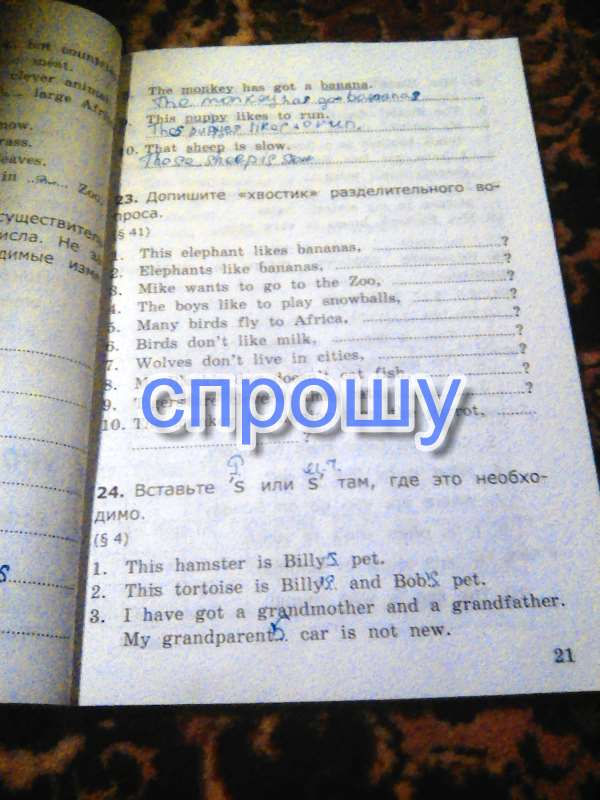 , but
clever animal.
large Afri
now.
rass.
eaves.
in Zoo,
существитель
исла. Не за
димые изме
s
The monkey has got a banana.
The monkey has got bananas
This puppy likes to run.
likes to run.
0. That sheep is slow.
These sheep is slow
23. Допишите «хвостик» разделительного во-
проса.
(§ 41)
1. This elephant likes bananas, ?
2. Elephants like bananas, ?
3. Mike wants to go to the Zoo, ?
4. The boys like to play snowballs, ?
5. Many birds fly to Africa, ?
6. Birds don't like milk, ?
7. Wolves don't live in cities, ?
8. fish, ?
9. ?
10. rot,
?
спрошу
24. Вставьте 's или s' там, где это необхо-
димо.
(§ 4)
1. This hamster is Billy's pet.
2. This tortoise is Billy's and Bob's pet.
3. I have got a grandmother and a grandfather.
My grandparents' car is not new.
21